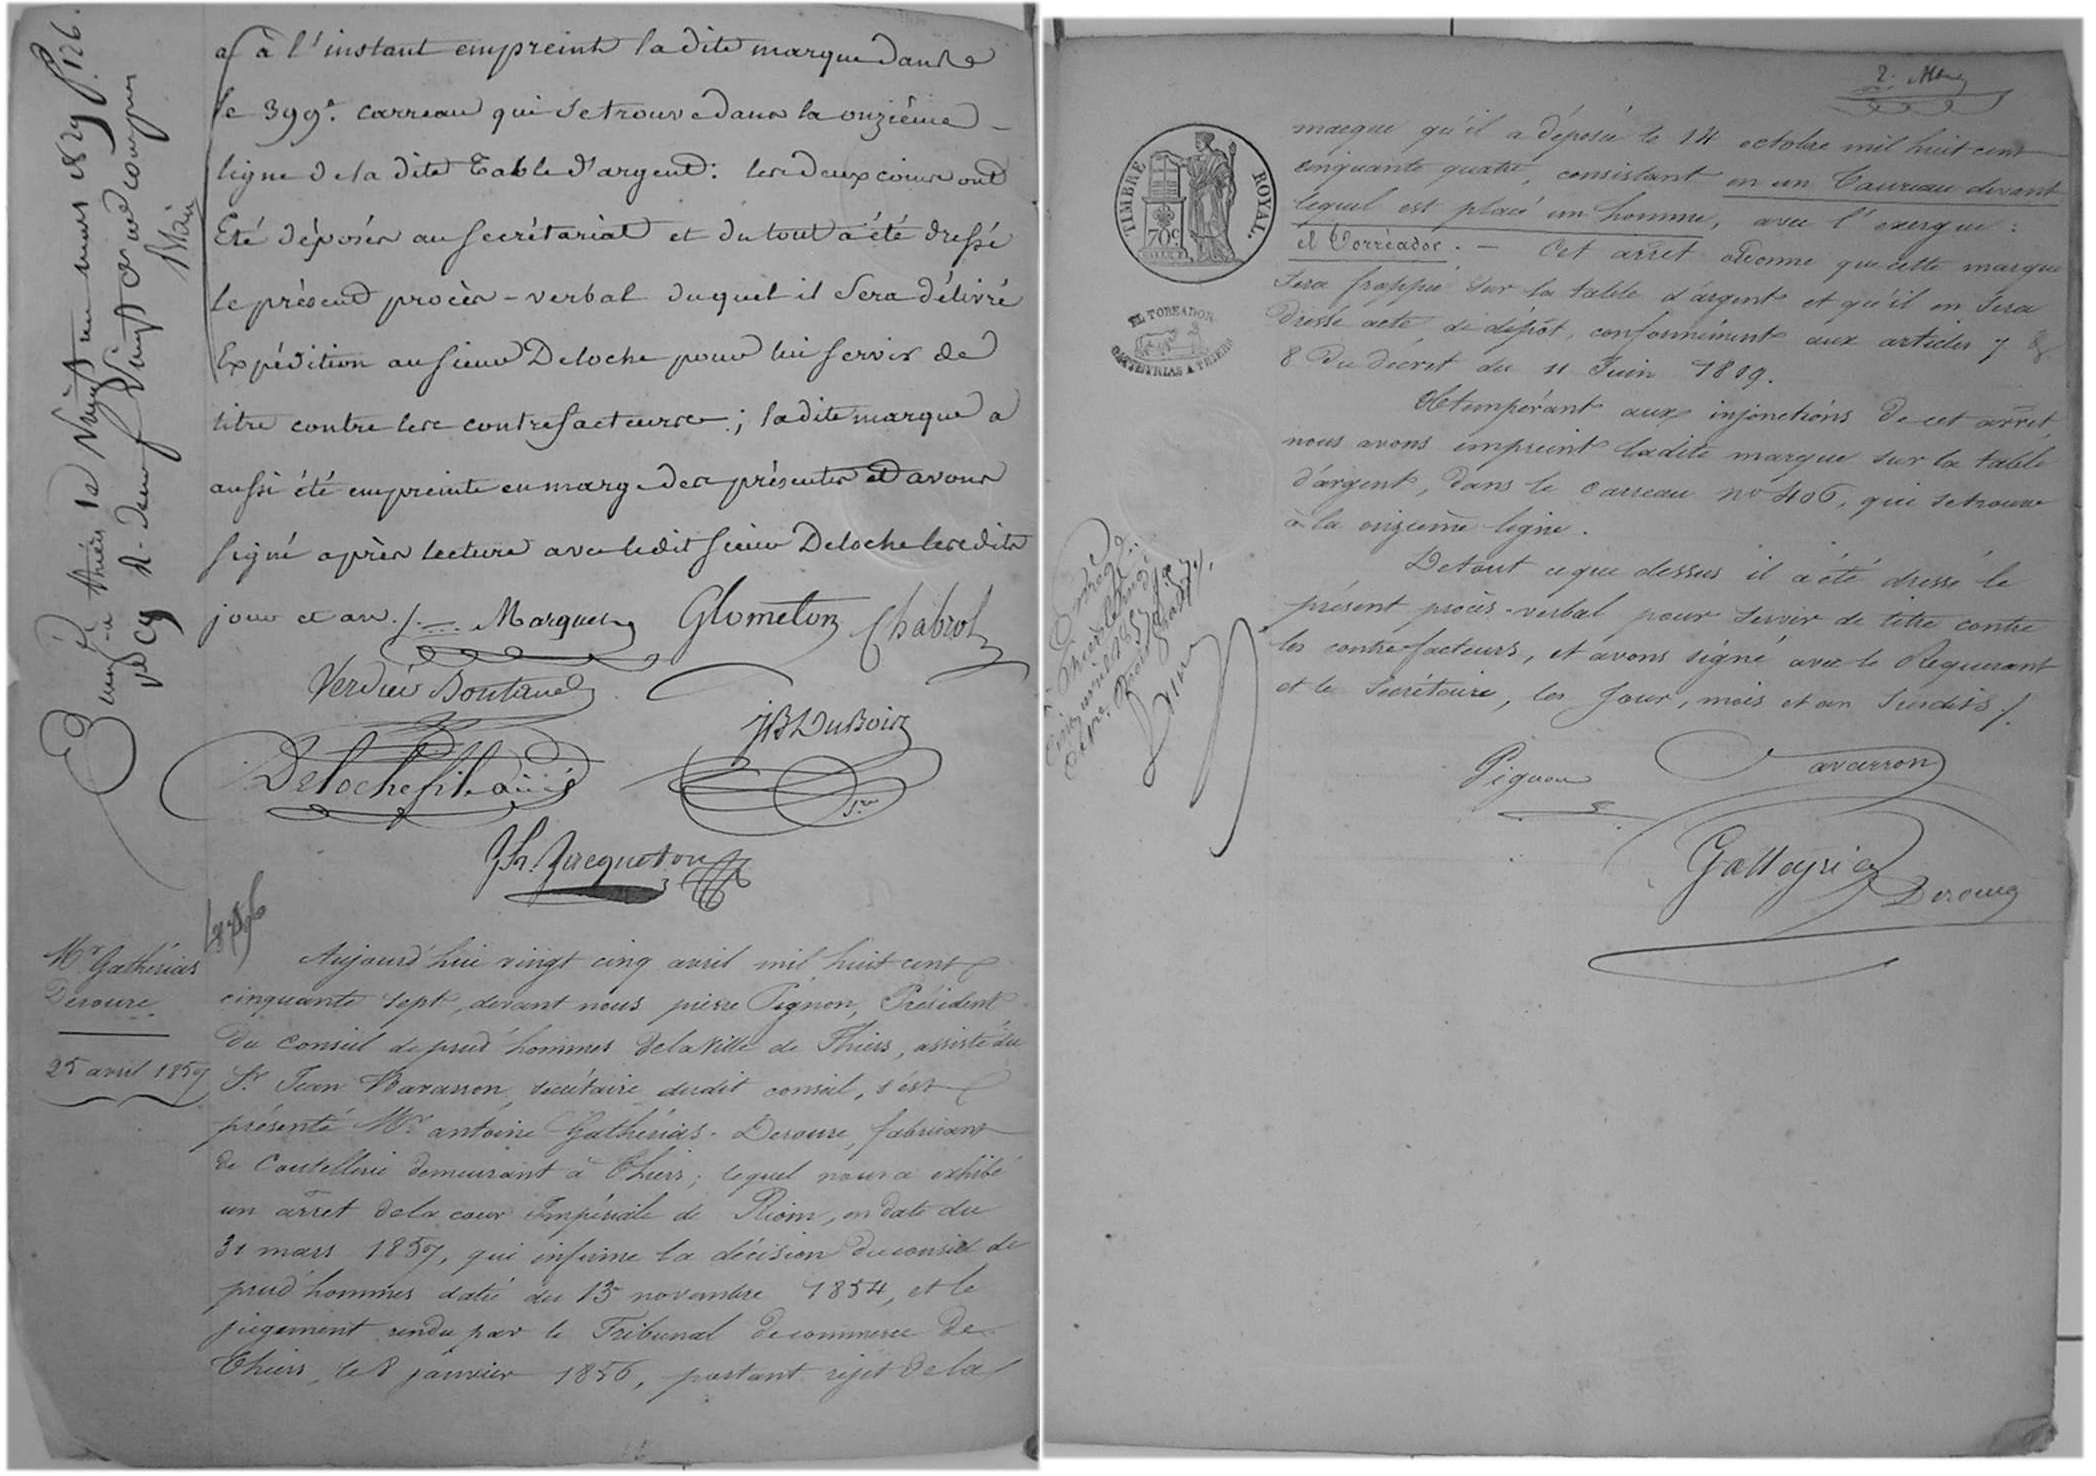 a à l'instant empreint la dite marque dans
le 399e. carreau qui se trouve dans la onzième
ligne de la dite Table d'argent: les deux coins ont
Eté déposés au secrétariat et du tout a été dressé
le présent procès-verbal duquel il sera délivré
Expédition au sieur Deloche pour lui servir de
titre contre les contrefacteurs; la dite marque a
aussi été empreinte en marge des présentes et avons
signé après lecture avec ledit sieur Deloche lesdits
jour et an ./.
Marques Glometon Chabrol
Verdier Boutarel
JB Dubois
Deloche fils ainé
Jh. Jacqueton
à thiers le Vingt un mars 1829 f. 126.
Mr Gathérias
Deroure
25 avril 1857
Aujourd'hui vingt cinq avril mil huit cent
cinquante sept, devant nous pierre Pignon, Président
Du Conseil de prud'hommes de la Ville de Thiers, assisté du
Sr. Jean Navarron, secrétaire dudit conseil, s'est
présenté Mr. antoine Gathérias-Deroure, fabricant
de Coutellerie demeurant à Thiers; lequel nous a exhibé
un arrêt de la cour Impériale de Riom, en date du
31 mars 1857, qui infirme la décision du conseil de
prud'hommes daté du 13 novembre 1854, et le
jugement rendu par le Tribunal de commerce de
Thiers, le 8 janvier 1856, portant rejet de la
2.
TIMBRE ROYAL.
70c
EL TOREADOR
marque qu'il a déposée le 14 octobre mil huit cent
cinquante quatre, consistant en un Taureau devant
lequel est placé un homme, avec l'exergue:
el Torréador. - Cet arrêt ordonne que cette marque
sera frappée sur la table d'argent et qu'il en sera
dressé acte de dépôt, conformément aux articles 7 &
8 Du décret du 11 Juin 1809.
Obtempérant aux injonctions de cet arrêt
nous avons empreint ladite marque sur la table
d'argent, dans le carreau no 406, qui se trouve
à la onzième ligne.
De tout ce que dessus il a été dressé le
présent procès-verbal pour servir de titre contre
les contrefacteurs, et avons signé avec le Requérant
et le Secrétaire, les Jour, mois et an susdits ./.
Pignon Navarron
Gatteyrias
Deroure